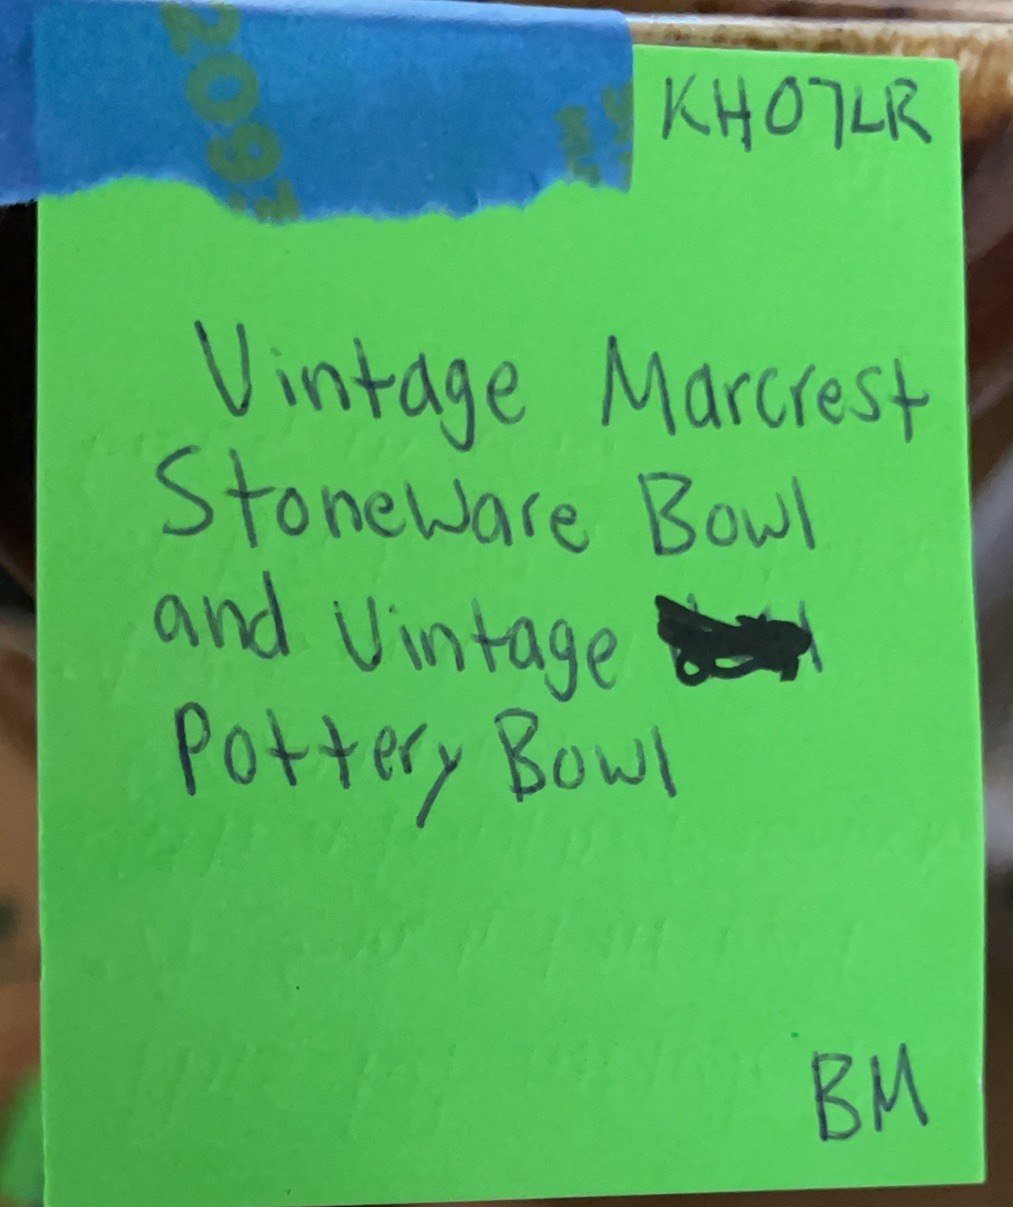 2093
KH07LR
Vintage Marcrest
StoneWare Bowl
and Vintage
Pottery Bowl
BM